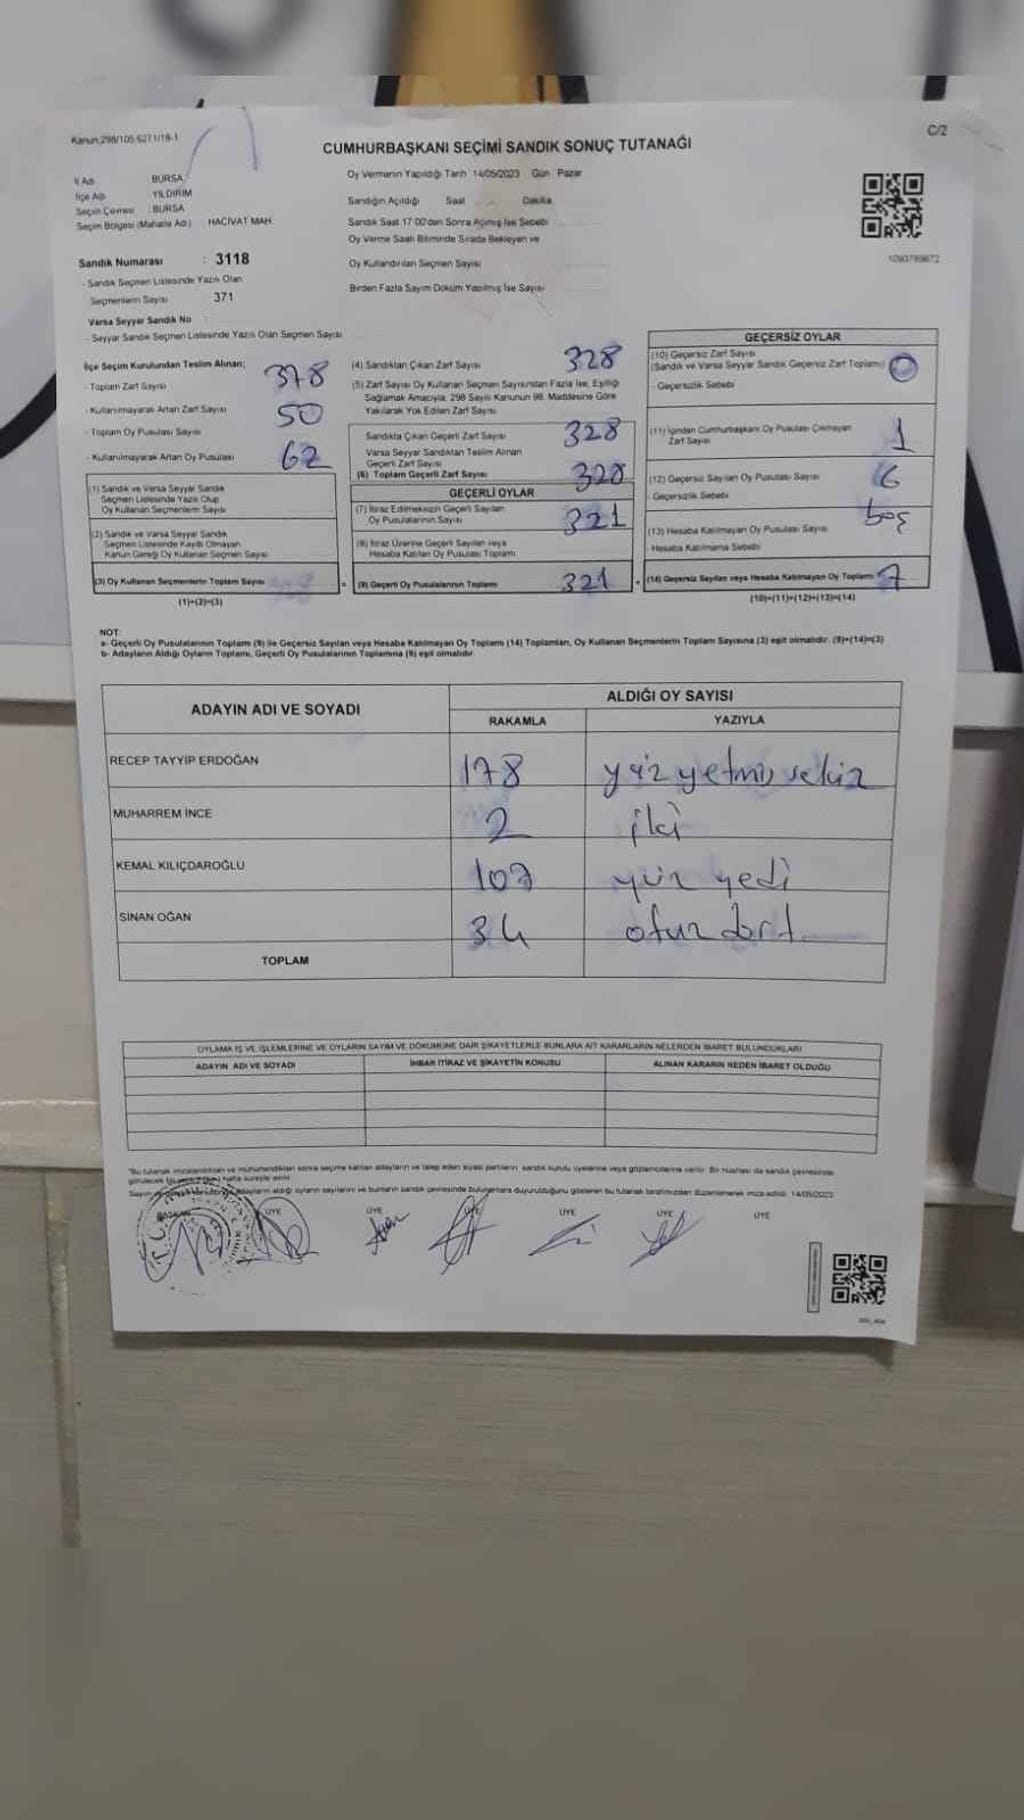 Kanun:298/105,6271/18-1
C/2
CUMHURBAŞKANI SEÇİMİ SANDIK SONUÇ TUTANAĞI
İl Adı BURSA
İlçe Adı YILDIRIM
Seçim Çevresi : BURSA
Seçim Bölgesi (Mahalle Adı) : HACİVAT MAH.
Oy Vermenin Yapıldığı Tarih 14/05/2023 Gün : Pazar
Sandığın Açıldığı Saat Dakika
Sandık Saat 17:00'den Sonra Açılmış İse Sebebi
Oy Verme Saati Bitiminde Sırada Bekleyen ve
Oy Kullandırılan Seçmen Sayısı
Birden Fazla Sayım Döküm Yapılmış İse Sayısı
1093789672
Sandık Numarası : 3118
- Sandık Seçmen Listesinde Yazılı Olan
Seçmenlerin Sayısı 371
Varsa Seyyar Sandık No :
- Seyyar Sandık Seçmen Listesinde Yazılı Olan Seçmen Sayısı
İlçe Seçim Kurulundan Teslim Alınan;
- Toplam Zarf Sayısı 378
- Kullanılmayarak Artan Zarf Sayısı 50
- Toplam Oy Pusulası Sayısı
- Kullanılmayarak Artan Oy Pusulası 62
(1) Sandık ve Varsa Seyyar Sandık
Seçmen Listesinde Yazılı Olup
Oy Kullanan Seçmenlerin Sayısı
(2) Sandık ve Varsa Seyyar Sandık
Seçmen Listesinde Kayıtlı Olmayan
Kanun Gereği Oy Kullanan Seçmen Sayısı
(3) Oy Kullanan Seçmenlerin Toplam Sayısı
(1)+(2)=(3)
(4) Sandıktan Çıkan Zarf Sayısı 328
(5) Zarf Sayısı Oy Kullanan Seçmen Sayısından Fazla İse, Eşitliği
Sağlamak Amacıyla; 298 Sayılı Kanunun 98. Maddesine Göre
Yakılarak Yok Edilen Zarf Sayısı
Sandıkta Çıkan Geçerli Zarf Sayısı 328
Varsa Seyyar Sandıktan Teslim Alınan
Geçerli Zarf Sayısı
(6) Toplam Geçerli Zarf Sayısı 328
GEÇERLİ OYLAR
(7) İtiraz Edilmeksizin Geçerli Sayılan
Oy Pusulalarının Sayısı 321
(8) İtiraz Üzerine Geçerli Sayılan veya
Hesaba Katılan Oy Pusulası Toplamı
= (9) Geçerli Oy Pusulalarının Toplamı 321
GEÇERSİZ OYLAR
(10) Geçersiz Zarf Sayısı
(Sandık ve Varsa Seyyar Sandık Geçersiz Zarf Toplamı) 0
- Geçersizlik Sebebi
(11) İçinden Cumhurbaşkanı Oy Pusulası Çıkmayan
Zarf Sayısı 1
(12) Geçersiz Sayılan Oy Pusulası Sayısı 6
- Geçersizlik Sebebi boş
(13) Hesaba Katılmayan Oy Pusulası Sayısı
- Hesaba Katılmama Sebebi
+ (14) Geçersiz Sayılan veya Hesaba Katılmayan Oy Toplamı 7
(10)+(11)+(12)+(13)=(14)
NOT:
a- Geçerli Oy Pusulalarının Toplamı (9) ile Geçersiz Sayılan veya Hesaba Katılmayan Oy Toplamı (14) Toplamları, Oy Kullanan Seçmenlerin Toplam Sayısına (3) eşit olmalıdır. (9)+(14)=(3)
b- Adayların Aldığı Oyların Toplamı, Geçerli Oy Pusulalarının Toplamına (9) eşit olmalıdır.
ADAYIN ADI VE SOYADI
ALDIĞI OY SAYISI
RAKAMLA YAZIYLA
RECEP TAYYİP ERDOĞAN 178 yüz yetmiş sekiz
MUHARREM İNCE 2 iki
KEMAL KILIÇDAROĞLU 107 yüz yedi
SİNAN OĞAN 34 otuz dört
TOPLAM
OYLAMA İŞ VE İŞLEMLERİNE VE OYLARIN SAYIM VE DÖKÜMÜNE DAİR ŞİKAYETLERLE BUNLARA AİT KARARLARIN NELERDEN İBARET BULUNDUKLARI
ADAYIN ADI VE SOYADI İHBAR İTİRAZ VE ŞİKAYETİN KONUSU ALINAN KARARIN NEDEN İBARET OLDUĞU
BAŞKAN ÜYE ÜYE ÜYE ÜYE ÜYE ÜYE